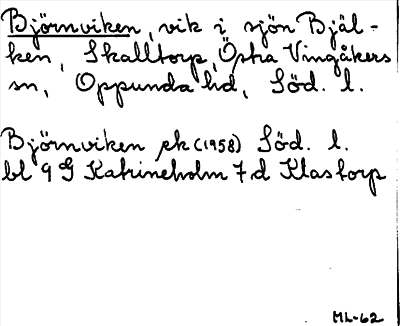 Björnviken, vik i sjön Bjäl-
ken, Skalltorp, Östra Vingåkers
sn, Oppunda hd, Söd. l.
Björnviken ek (1958) Söd. l.
bl 9 G Katrineholm 7 d Klastorp
ML-62